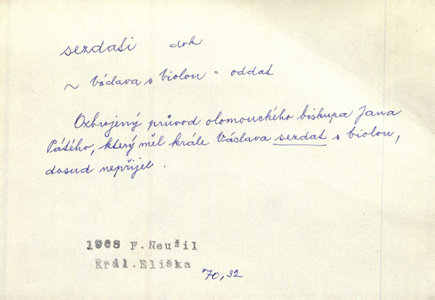 sezdati dok
~ Václava s biolou = oddat
Ozbrojený průvod olomouckého biskupa Jana
Pátého, který měl krále Václava sezdat s biolou,
dosud nepřijel.
1968 F. Neužil
Král. Eliška
70,32